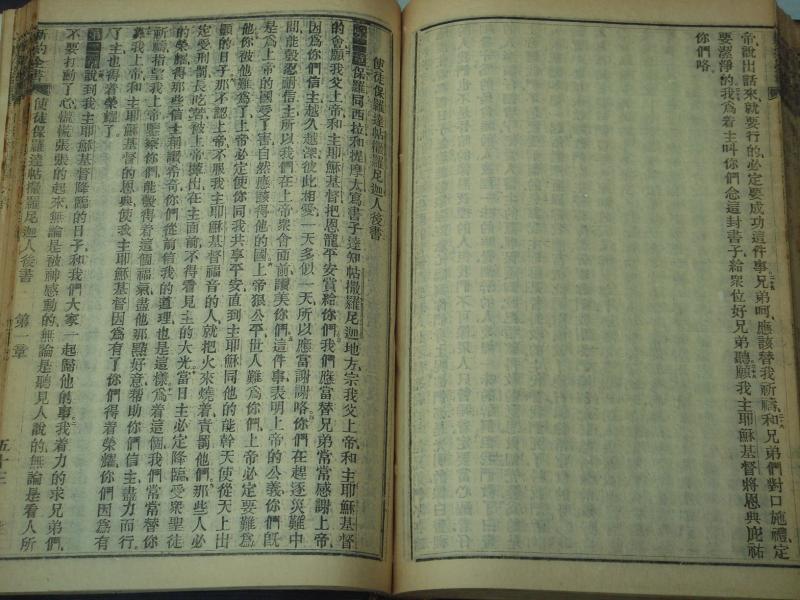 帝說出話來、就要行的、必定要成功這件事、兄弟呵、應該替我祈禱、和兄弟們對口施禮、定
要潔淨的、我爲着主叫你們念這封書子給衆位好兄弟聽、願我主耶穌基督將恩典庇祐
你們咯
使徒保羅達帖撒羅尼迦人後書
保羅同西拉和提摩太寫書子達知帖撒羅尼迦地方、宗我父上帝和主耶穌基督
的會、願我父上帝和主耶穌基督把恩寵平安賞給你們、我們應當替兄弟常常感謝上帝
因爲你們信主越久越深、彼此相愛、一天多似一天、所以應當謝謝咯、你們在趕逐災難中
間能彀忍耐信主、所以我們在上帝衆會面前讚美你們、這件事表明上帝的公義、你們既
是爲上帝的國受了害、自然應該得他的國、上帝狠公平、世人難爲你們、上帝必定要難爲
他、你被他難爲了、上帝必定使你同我共享平安、直到主耶穌同他的能幹天使從天上出
顯的日子、那不認上帝、不服我主耶穌基督福音的人、就把火來燒着責罰他們、那些人必
定受刑罰、長吃苦、被上帝攆出在主面前、不得看見主的大光、當日主必定降臨、受衆聖徒
的榮耀、得那些信主稱讚希奇、你們從前信我的道理、也是這樣、爲着這個我們常常替你
祈禱、指望我上帝鑒察你們、能彀得着這個福氣、盡他那點好意、幫助你們信主、盡力而行
靠我上帝和主耶穌基督的恩典、使我主耶穌基督因爲有了你們得着榮耀、你們因爲有
了主也得着榮耀了
說到我主耶穌基督降臨的日子、和我們大家一起歸他的事、我着力的求兄弟們、
不要打動了心、慌慌張張的起來、無論是被神感動的、無論是聽見人說的、無論是看人所
新約全書 使徒保羅達帖撒羅尼迦人後書 第一章 五十三